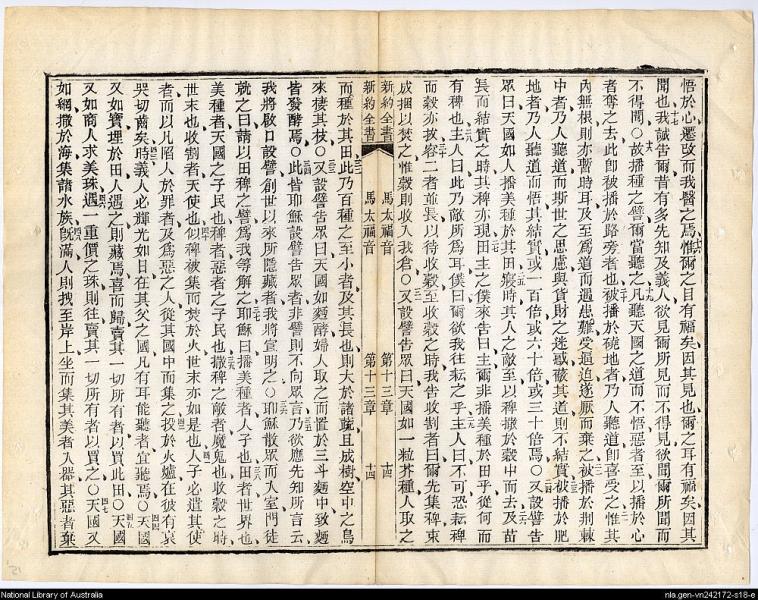 悟於心遷改而我醫之焉惟爾之目有福矣因其見也爾之耳有福矣因其
聞也我誠告爾昔有多先知及義人欲見爾所見而不得見欲聞爾所聞而
不得聞○故播種之譬爾當聽之凡聽天國之道而不悟惡者至以播於心
者奪之去此卽被播於路旁者也被播於磽地者乃人聽道卽喜受之惟其
內無根則亦暫時耳及至爲道而遇患難受逼迫遂厭而棄之被播於荆棘
中者乃人聽道而斯世之思慮與貨財之迷惑蔽其道則不結實被播於肥
地者乃人聽道而悟其結實或一百倍或六十倍或三十倍焉○又設譬告
眾曰天國如人播美種於其田寢時其人之敵至以稗撒於穀中而去及苗
長而結實之時其稗亦現田主之僕來告曰主爾非播美種於田乎從何而
有稗也主人曰此乃敵所爲耳僕曰爾欲我往耘之乎主人曰不可恐耘稗
而穀亦拔容二者並長以待收穀至收穀之時我告收割者曰爾先集稗束
成捆以焚之惟穀則收入我倉○又設譬告眾曰天國如一粒芥種人取之
新約全書 馬太福音 第十三章 十四
新約全書 馬太福音 第十三章 十四
而種於其田此乃百種之至小者及其長也則大於諸蔬且成樹空中之鳥
來棲其枝○又設譬告眾曰天國如麵酵婦人取之而置於三斗麵中致麵
皆發酵焉○此皆耶穌設譬告眾者非譬則不向眾言乃欲應先知所言云
我將啟口設譬創世以來所隱藏者我將宣明之○耶穌散眾而入室門徒
就之曰請以田稗之譬爲我等解之耶穌曰播美種者人子也田者世界也
美種者天國之子民也稗者惡者之子民也撒稗之敵者魔鬼也收穀之時
世末也收割者天使也似稗被集而焚於火世末亦如是也人子必遣其使
者而以凡陷人於罪者及爲惡之人從其國中而集之投於火爐在彼有哀
哭切齒矣時義人必輝光如日在其父之國凡有耳能聽者宜聽焉○天國
又如寶埋於田人遇之則藏焉喜而歸賣其一切所有者以買此田○天國
又如商人求美珠遇一重價之珠則往賣其一切所有者以買之○天國又
如網撒於海集諸水族旣滿人則拽至岸上坐而集其美者入器其惡者棄
National Library of Australia
nla.gen-vn242172-s18-e